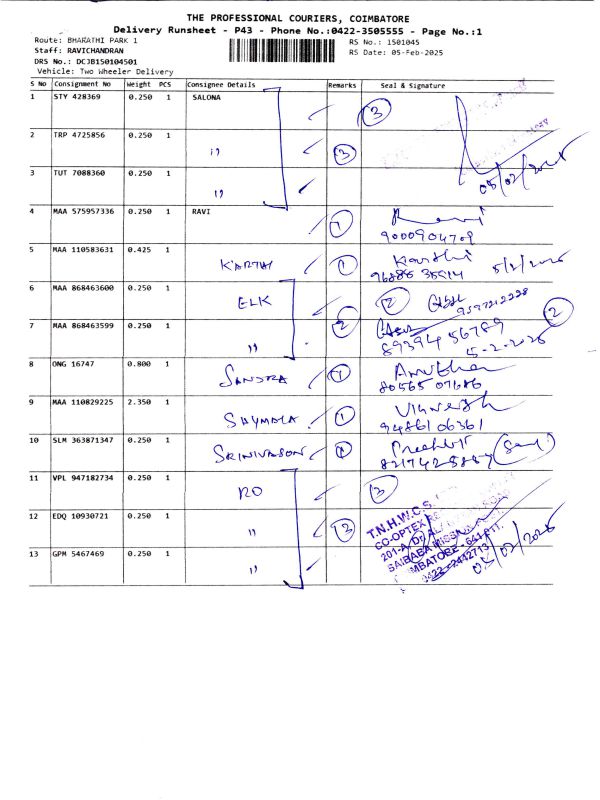 THE PROFESSIONAL COURIERS, COIMBATORE
Delivery Runsheet - P43 - Phone No.:0422-3505555 - Page No.:1
Route: BHARATHI PARK 1
RS No.: 1501045
Staff: RAVICHANDRAN
RS Date: 05-Feb-2025
DRS No.: DCJB150104501
Vehicle: Two Wheeler Delivery
S No Consignment No Weight PCS Consignee Details Remarks Seal & Signature
1 STY 428369 0.250 1 SALONA 3
2 TRP 4725856 0.250 1 " 3
3 TUT 7088360 0.250 1 " 05/02/2025
4 MAA 575957336 0.250 1 RAVI 1 Ravi
9000904709
5 MAA 110583631 0.425 1 KARTHI 1 Karthi 5/2/2025
6 MAA 868463600 0.250 1 ELK 2
7 MAA 868463599 0.250 1 " 2 2
89394 56789
5-2-2025
8 ONG 16747 0.800 1 SANDRA 1
80565 07686
9 MAA 110829225 2.350 1 1 Vignesh
94861 06361
10 SLM 363871347 0.250 1 SRINIVASON 1
11 VPL 947182734 0.250 1 RO 3
12 EDQ 10930721 0.250 1 " 3
13 GPM 5467469 0.250 1 "
T.N.H.W.C.S.
CO-OPTEX
SAIBABA MISSION
0422-2442713
05/02/2025